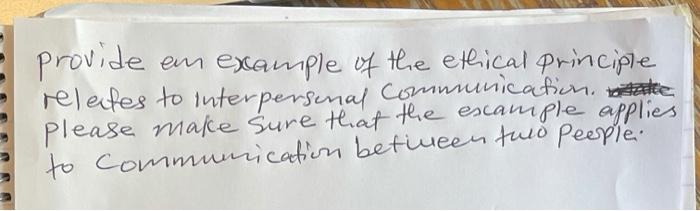 provide an example of the ethical principle
relates to interpersonal communication.
please make sure that the example applies
to communication between two people.